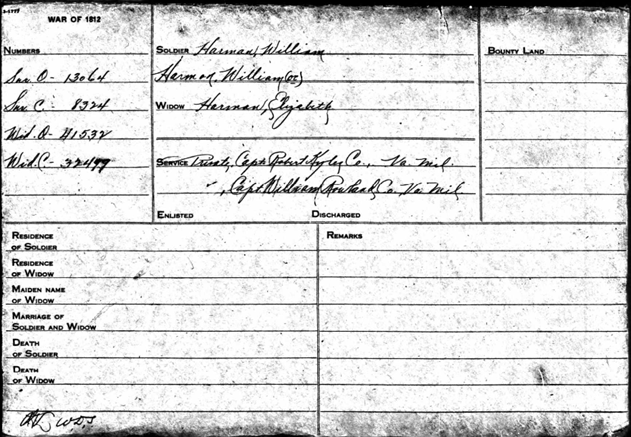 3-1777
WAR OF 1812
NUMBERS
Sur. O - 13064
Sur. C - 8324
Wid. O - 41532
Wid. C - 32499
SOLDIER Harman, William
Harmon, William (or)
WIDOW Harman, Elizabeth
SERVICE Private, Capt Robert Kyle, Co., Va. Mil
", Capt William Rowland, Co. Va Mil
ENLISTED DISCHARGED
BOUNTY LAND
RESIDENCE
OF SOLDIER
RESIDENCE
OF WIDOW
MAIDEN NAME
OF WIDOW
MARRIAGE OF
SOLDIER AND WIDOW
DEATH
OF SOLDIER
DEATH
OF WIDOW
REMARKS